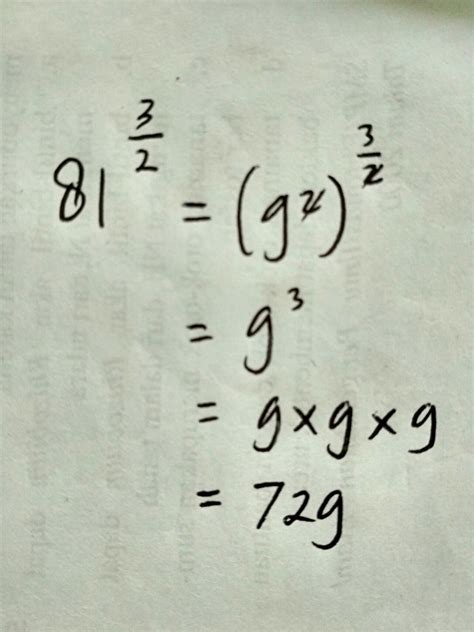 81^(3/2) = (9^2)^(3/2)
= 9^3
= 9 × 9 × 9
= 729